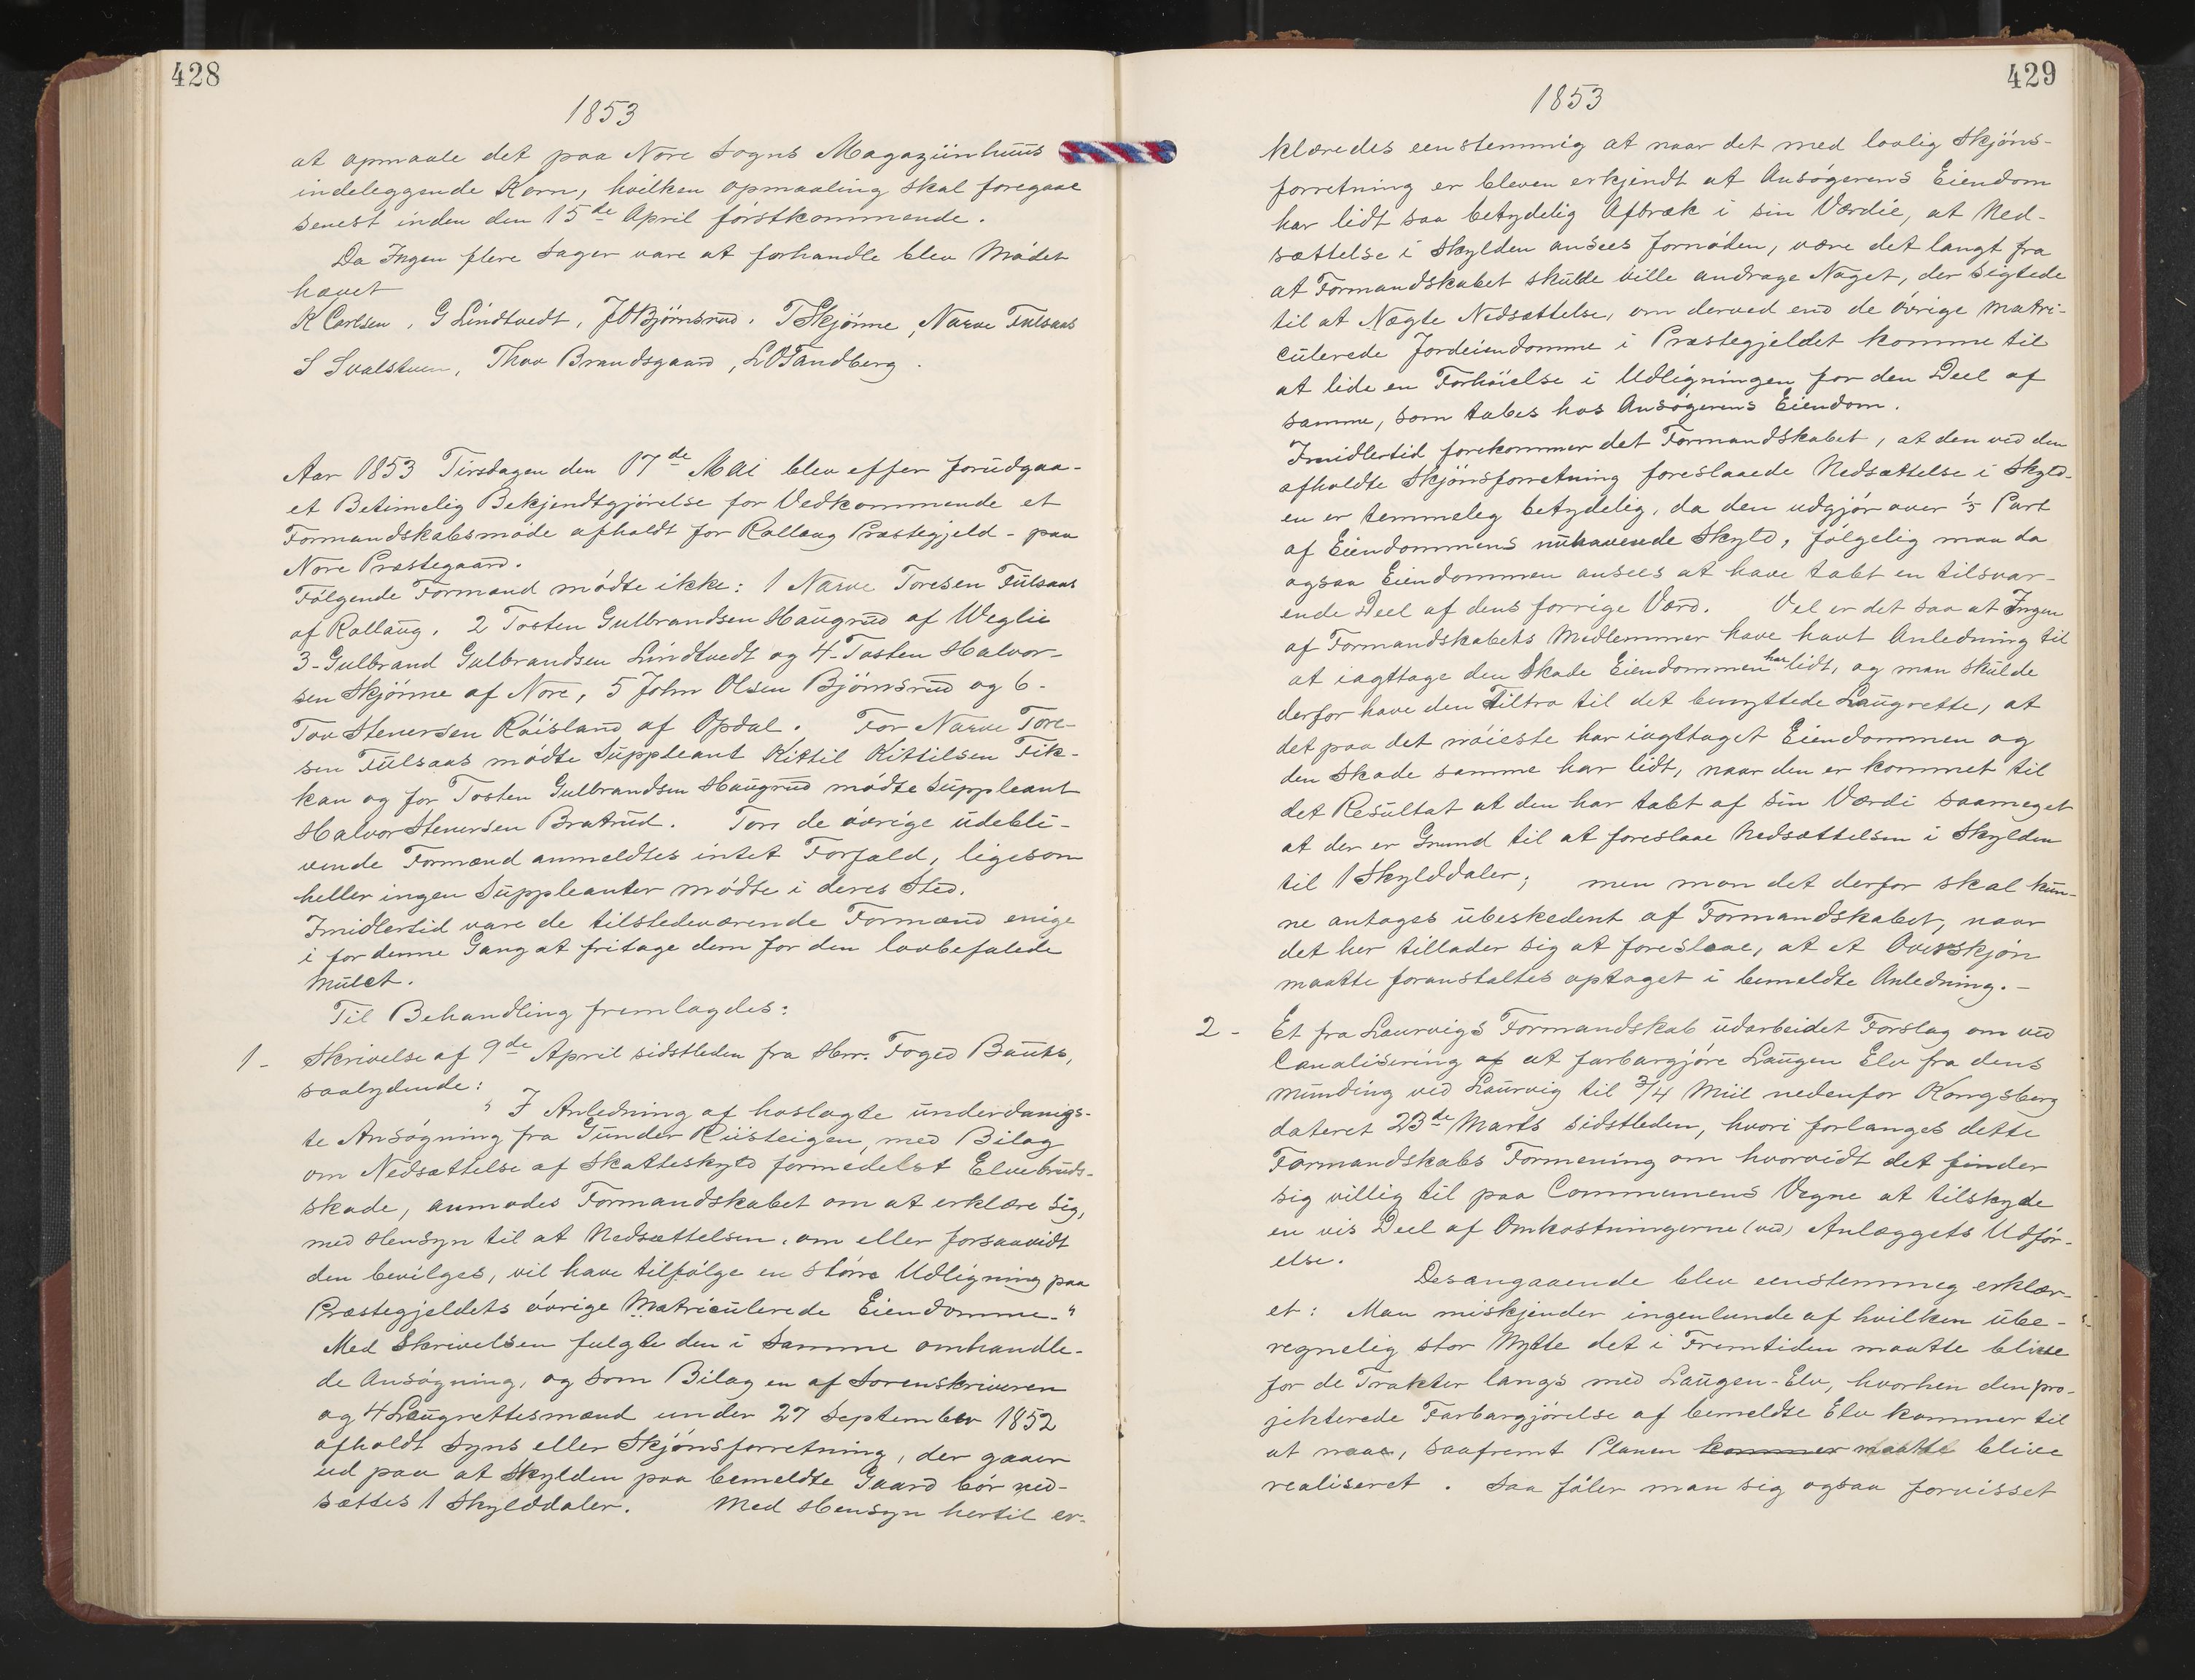 428
1853
at opmaale det paa Nore Sogns Magaziinhuus
indeleggende Korn, hvilken opmaaling skal foregaae
senest inden den 15de April förstkommende.
Da Ingen flere Sager vare at forhandle blev Mödet
hævet
K Carlsen, G Lindtvedt, J O Björnsrud, T Skjönne, Narve Fulsaas
S Svalstuen, Thov Brandsgaard, L O Tandberg.
Aar 1853 Tirsdagen den 17de Mai blev efter forudgaa-
et Betimelig Bekjendtgjörelse for Vedkommende et
Formandskabsmöde afholdt for Rollaug Præstegjeld - paa
Nore Præstegaard.
Fölgende Formænd mödte ikke: 1 Narve Toresen Fulsaas
af Rollaug, 2 Tosten Gulbrandsen Haugrud af Weglie
3- Gulbrand Gulbrandsen Lindtvedt og 4- Tosten Halvor-
sen Skjönne af Nore, 5 John Olsen Björnsrud og 6-
Tov Stenersen Röisland af Opdal. For Narve Tore-
sen Fulsaas mödte Suppleant Kittil Kittilsen Fik-
kan og for Tosten Gulbrandsen Haugrud mödte Suppleant
Halvor Stenersen Bratrud. For de övrige udebli-
vende Formænd anmeldtes intet Forfald, ligesom
heller ingen Suppleanter mödte i deres Sted.
Imidlertid vare de tilstedeværende Formænd enige
i for denne Gang at fritage dem for den lovbefalede
Mulct.
Til Behandling fremlagdes:
1- Skrivelse af 9de April sidstleden fra Hrr. Foged Bauts,
saalydende:
"I Anledning af hoslagte underdanigs-
te Ansögning fra Gunder Riisteigen, med Bilag
om Nedsættelse af Skatteskyld formedelst Elvebruds-
skade, anmodes Formandskabet om at erklære sig,
med Hensyn til at Nedsættelsen, om eller forsaavidt
den bevilges, vil have tilfölge en större Udligning paa
Præstegjeldets övrige Matriculerede Eiendomme."
Med Skrivelsen fulgte den i Samme omhandle-
de Ansögning, og som Bilag en af Sorenskriveren
og 4 Laugrettesmænd under 27 September 1852
afholdt Syns eller Skjönsforretning, der gaaer
ud paa at Skylden paa bemeldte Gaard bör ned-
sættes 1 Skylddaler. Med Hensyn hertil er-
429
1853
klæredes eenstemmig at naar det med lovlig Skjöns-
forretning er bleven erkjendt at Ansögerens Eiendom
har lidt saa betydelig Afbræk i sin Værdie, at Ned-
sættelse i Skylden ansees fornöden, være det langt fra
at Formandskabet skulde ville andrage Noget, der sigtede
til at Nægte Nedsættelse, om derved end de övrige matri-
culerede Jordeiendomme i Præstegjeldet komme til
at lide en Forhöielse i Udligningen for den Deel af
samme, som tabes hos Ansögerens Eiendom.
Imidlertid forekommer det Formandskabet, at den ved den
afholdte Skjönsforretning foreslaaede Nedsættelse i Skyld-
en er temmeleg betydelig, da den udgjör over 1/5 Part
af Eiendommens nuhavende Skyld, fölgelig maa da
ogsaa Eiendommen ansees at have tabt en tilsvar-
ende Deel af dens forrige Værd. Vel er det saa at Ingen
af Formandskabets Medlemmer have havt Anledning til
at iagttage den Skade Eiendommen har lidt, og man skulde
derfor have den Tiltro til det benyttede Laugrette, at
det paa det nöieste har iagttaget Eiendommen og
den Skade samme har lidt, naar den er kommet til
det Resultat at den har tabt af sin Værdi saameget
at der er Grund til at foreslaae Nedsættelsen i Skylden
til 1 Skylddaler; men mon det derfor skal kun-
ne antages ubeskedent af Formandskabet, naar
det her tillader sig at foreslaae, at et Overskjön
maatte foranstaltes optaget i bemeldte Anledning.-
2- Et fra Laurvigs Formandskab udarbeidet Forslag om ved
Canalisering af at farbargjöre Laugen Elv fra dens
munding ved Laurvig til 3/4 Miil nedenfor Kongsberg
dateret 23de Marts sidstleden, hvori forlanges dette
Formandskabs Formening om hvorvidt det finder
sig villig til paa Communens Vegne at tilskyde
en vis Deel af Omkostningerne (ved) Anlæggets Udför-
else.
Desangaaende blev eenstemmeg erklær-
et: Man miskjender ingenlunde af hvilken ube-
regnelig stor Nytte det i Fremtiden maatte blive
for de Trakter langs med Laugen-Elv, hvorhen den pro-
jekterede Farbargjörelse af bemeldte Elv kommer til
at naae, saafremt Planen kommer maatte blive
realiseret. Saa föler man sig ogsaa forvisset